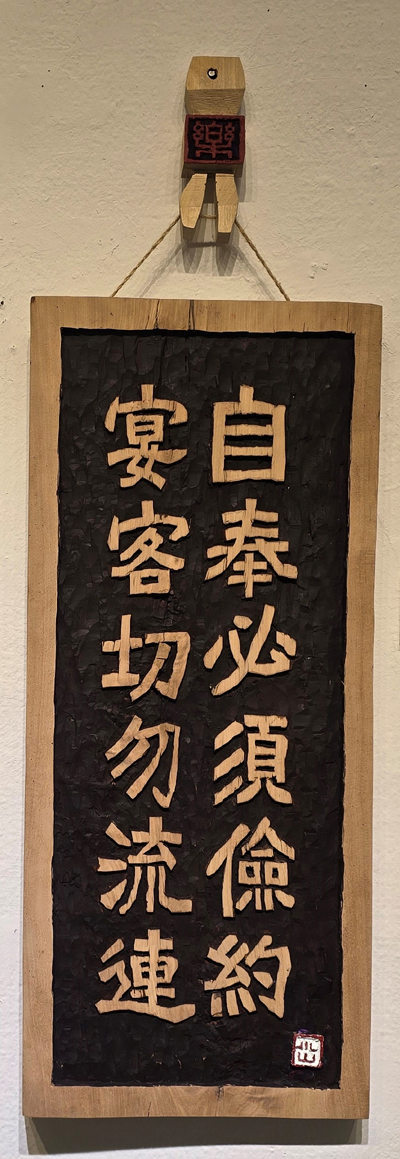 樂
自奉必須儉約
宴客切勿流連